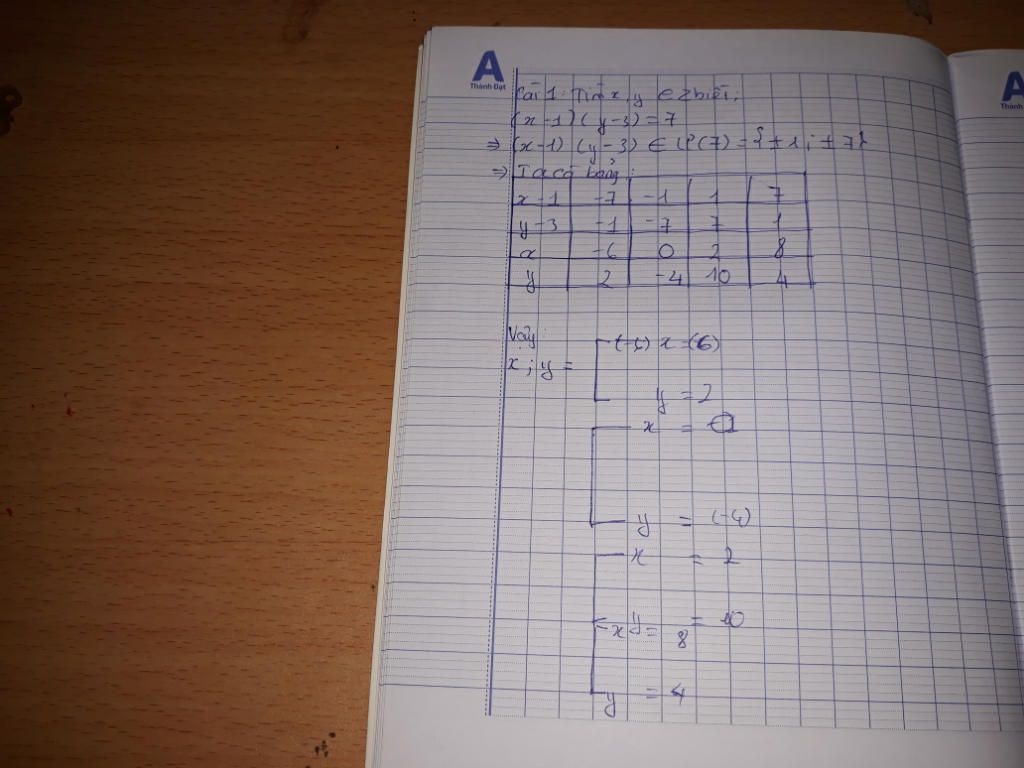 A
Thành Đạt
A
Bài 1: Tìm x, y ∈ Z biết:
(x-1)(y-3)=7
⇒ (x-1)(y-3) ∈ Ư(7) = {±1; ±7}
⇒ Ta có bảng:
x-1 -7 -1 1 7
y-3 -1 -7 7 1
x -6 0 2 8
y 2 -4 10 4
Vậy:
x; y =
x = (6)
y = 2
x = 0
y = (-4)
x = 2
y = 10
x = 8
y = 4